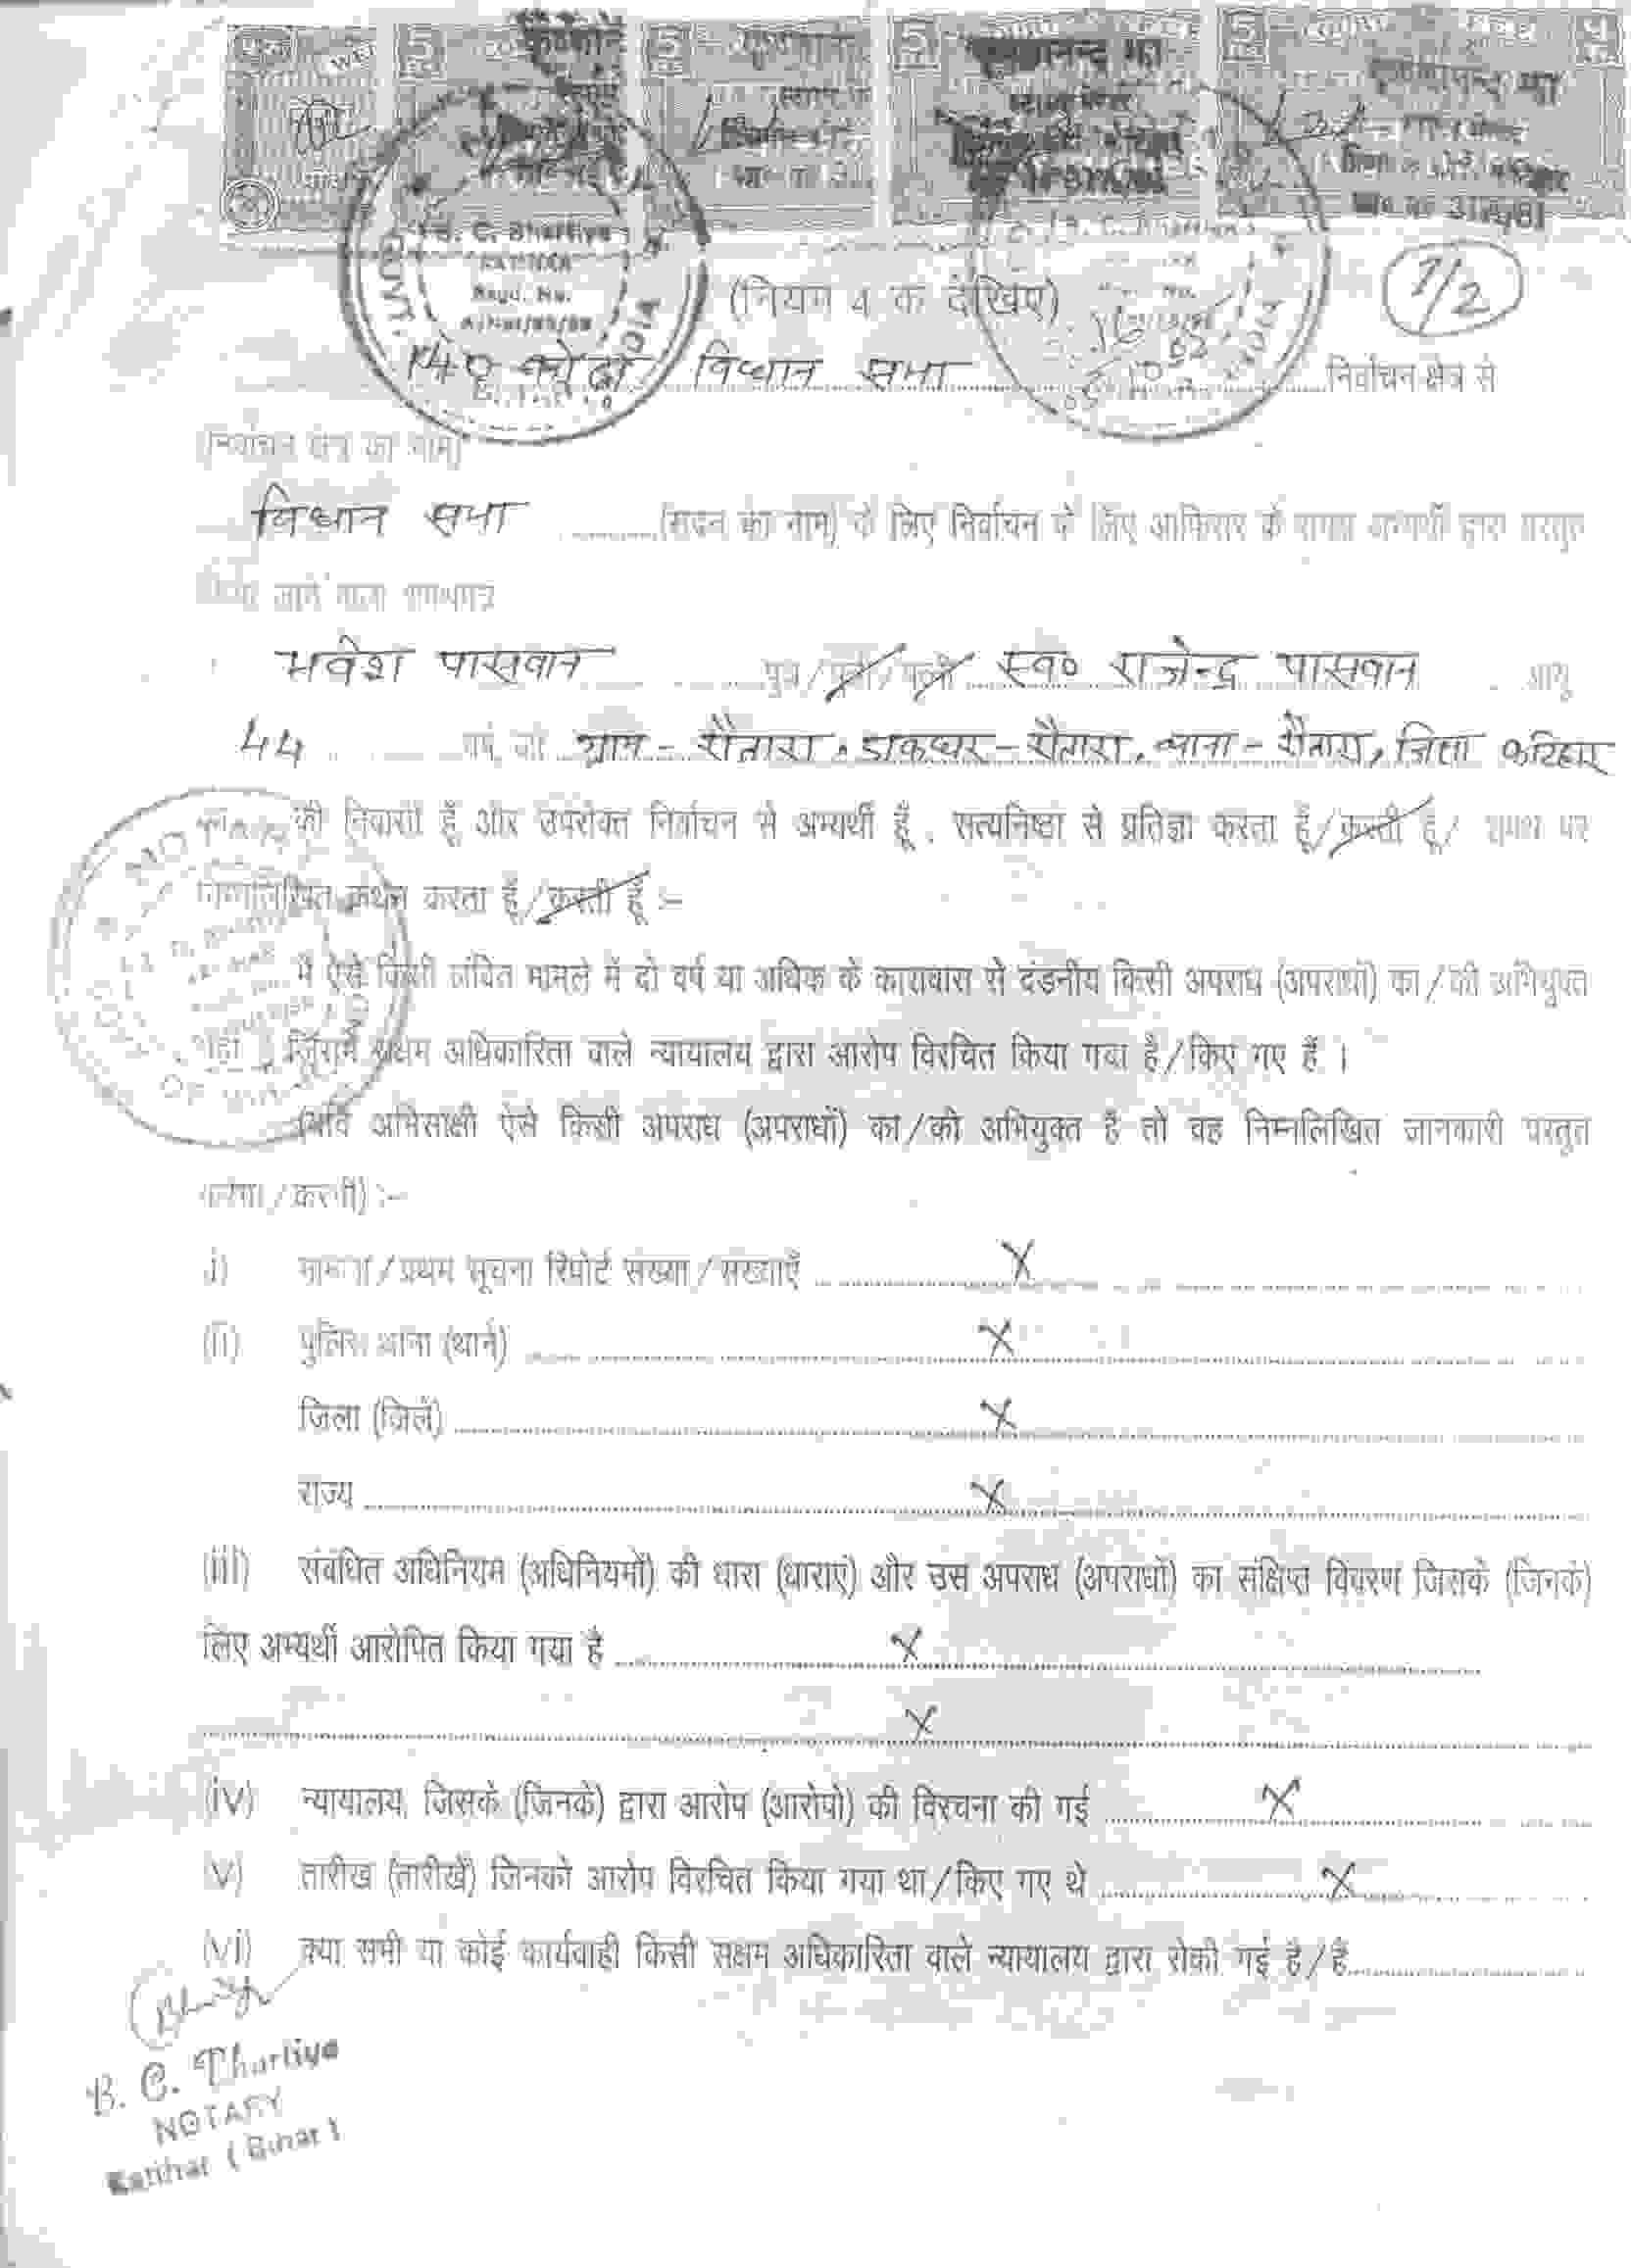 5 5 5 5
B. C. Bhartiya
Regd. No.
(नियम 4 क देखिए)
1/2
140 कोढ़ा विधान सभा निर्वाचन क्षेत्र से
(निर्वाचन क्षेत्र का नाम)
विधान सभा (सदन का नाम) के लिए निर्वाचन के लिए आफिसर के समक्ष अभ्यर्थी द्वारा प्रस्तुत
किया जाने वाला शपथपत्र
भवेश पासवान पुत्र/पुत्री/पत्नी स्व० राजेन्द्र पासवान आयु
44 वर्ष, जो ग्राम - रौतारा, डाकघर - रौतारा, थाना - रौतारा, जिला कटिहार
की निवासी हूँ और उपरोक्त निर्वाचन से अभ्यर्थी हूँ, सत्यनिष्ठा से प्रतिज्ञा करता हूँ/करती हूँ/ शपथ पर
निम्नलिखित कथन करता हूँ/करती हूँ :-
मैं ऐसे किसी लंबित मामले में दो वर्ष या अधिक के कारावास से दंडनीय किसी अपराध (अपराधों) का/की अभियुक्त
नहीं जिसमें सक्षम अधिकारिता वाले न्यायालय द्वारा आरोप विरचित किया गया है/किए गए हैं ।
(यदि अभिसाक्षी ऐसे किसी अपराध (अपराधों) का/की अभियुक्त है तो वह निम्नलिखित जानकारी प्रस्तुत
करेगा/करेगी) :-
(i) मामला/प्रथम सूचना रिपोर्ट संख्या/संख्याएँ X
(ii) पुलिस थाना (थाने) X
जिला (जिले) X
राज्य X
(iii) संबंधित अधिनियम (अधिनियमों) की धारा (धाराएं) और उस अपराध (अपराधों) का संक्षिप्त विवरण जिसके (जिनके)
लिए अभ्यर्थी आरोपित किया गया है X
X
(iv) न्यायालय, जिसके (जिनके) द्वारा आरोप (आरोपों) की विरचना की गई X
(v) तारीख (तारीखें) जिनको आरोप विरचित किया गया था/किए गए थे X
(vi) क्या सभी या कोई कार्यवाही किसी सक्षम अधिकारिता वाले न्यायालय द्वारा रोकी गई है/हैं
B. C. Bhartiya
NOTARY
Katihar (Bihar)